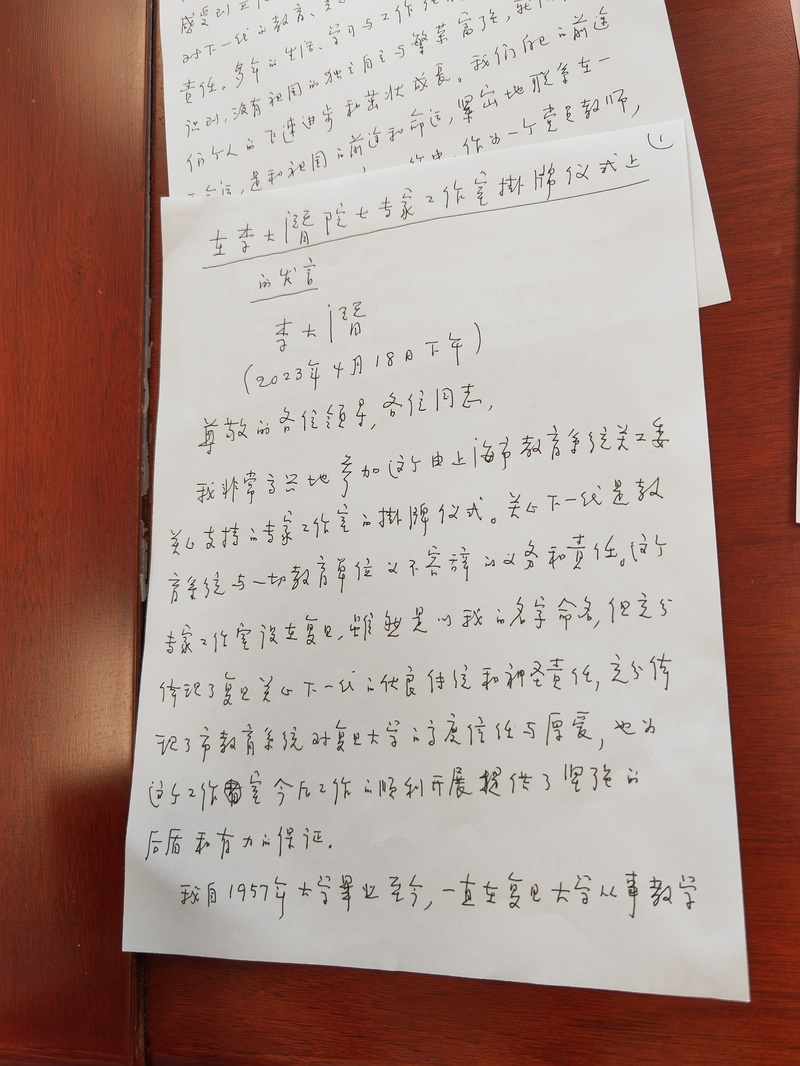 感受到
对下一代的教育、
责任。多年的生活、学习与工作
识到,没有祖国的独立自主与繁荣富强,就
们个人的飞速进步和茁壮成长。我们自己的前途
命运,是和祖国的前途和命运,紧密地联系在一
作为一个党员教师,
(1
在李大潛院士专家工作室掛牌仪式上
的发言
李大潛
(2023年4月18日下午)
尊敬的各位领导,各位同志,
我非常高兴地参加这个由上海市教育系统关工委
关心支持的专家工作室的掛牌仪式。关心下一代是教
育系统与一切教育单位义不容辞的义务和责任。这个
专家工作室设在复旦,虽然是以我的名字命名,但充分
体现了复旦关心下一代的优良传统和神圣责任,充分体
现了市教育系统对复旦大学的高度信任与厚爱,也为
这个工作室今后工作的顺利开展提供了坚强的
后盾和有力的保证.
我自1957年大学畢业至今,一直在复旦大学从事教学